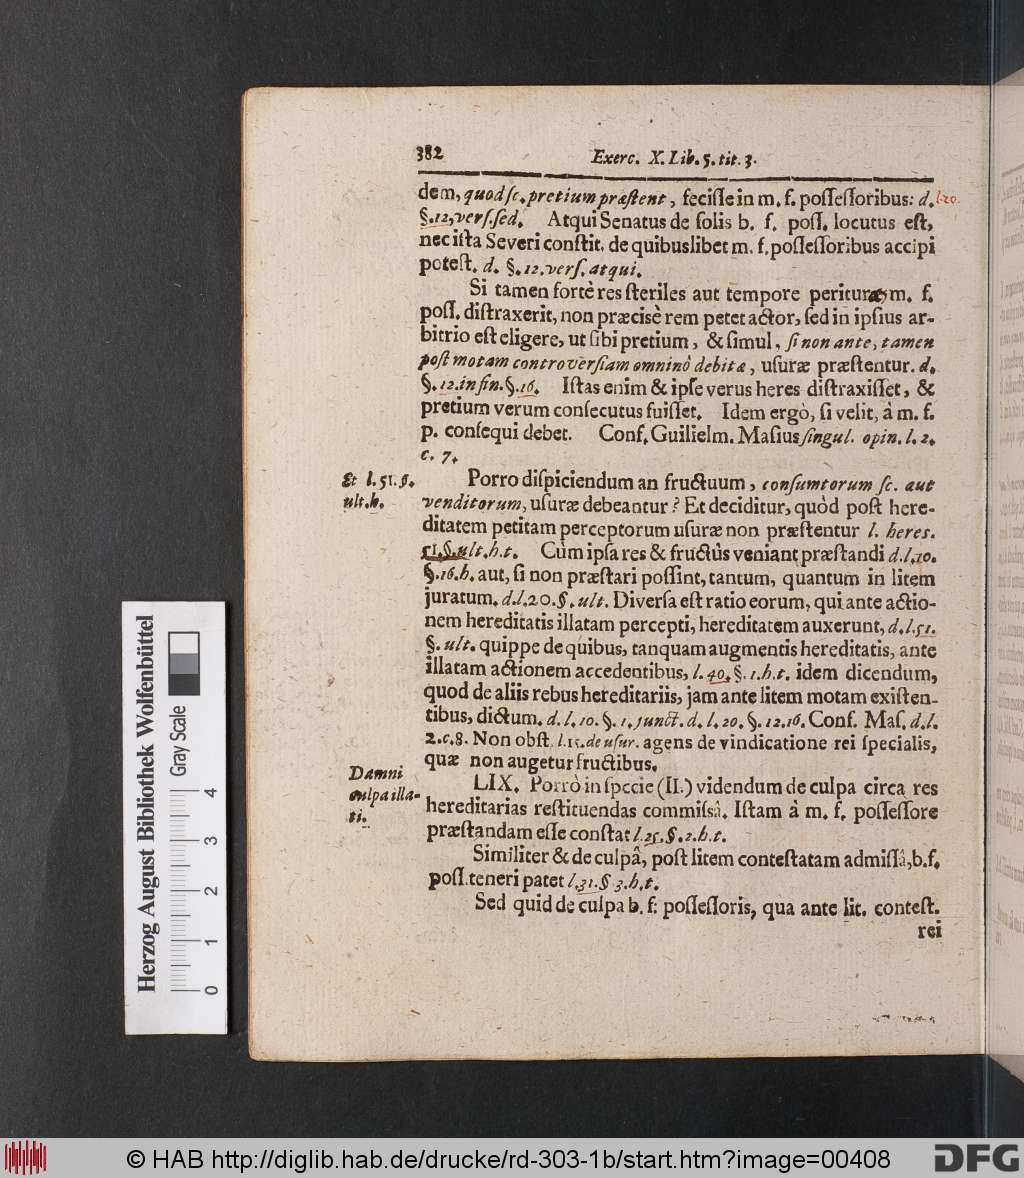 382
Exerc. X. Lib. 5. tit. 3.
dem, quod ſc. pretium præſtent, feciſſe in m. f. poſſeſſoribus: d. l. 20.
§. 12, verſ. ſed. Atqui Senatus de ſolis b. f. poſſ. locutus eſt,
nec iſta Severi conſtit. de quibuslibet m. f. poſſeſſoribus accipi
poteſt. d. §. 12. verſ. atqui.
Si tamen fortè res ſteriles aut tempore perituras m. f.
poſſ. diſtraxerit, non præcisè rem petet actor, ſed in ipſius ar-
bitrio eſt eligere, ut ſibi pretium, & ſimul, ſi non ante, tamen
poſt motam controverſiam omninò debitæ, uſuræ præſtentur. d.
§. 12. in fin. §. 16. Iſtas enim & ipſe verus heres diſtraxiſſet, &
pretium verum conſecutus fuiſſet. Idem ergò, ſi velit, à m. f.
p. conſequi debet. Conf. Guilielm. Maſius ſingul. opin. l. 2.
c. 7.
Et l. 51. §.
ult. h.
Porro diſpiciendum an fructuum, conſumtorum ſc. aut
venditorum, uſuræ debeantur? Et deciditur, quòd poſt here-
ditatem petitam perceptorum uſuræ non præſtentur l. heres.
51. §. ult. h. t. Cùm ipſa res & fructus veniant præſtandi d. l. 20.
§. 16. h. aut, ſi non præſtari poſſint, tantum, quantum in litem
juratum. d. l. 20. §. ult. Diverſa eſt ratio eorum, qui ante actio-
nem hereditatis illatam percepti, hereditatem auxerunt, d. l. 51.
§. ult. quippe de quibus, tanquam augmentis hereditatis, ante
illatam actionem accedentibus, l. 40. §. 1. h. t. idem dicendum,
quod de aliis rebus hereditariis, jam ante litem motam exiſten-
tibus, dictum. d. l. 10. §. 1. junct. d. l. 20. §. 12. 16. Conf. Maſ. d. l.
2. c. 8. Non obſt. l. 15. de uſur. agens de vindicatione rei ſpecialis,
quæ non augetur fructibus.
Damni
culpa illa-
ti.
LIX. Porrò in ſpecie (II.) videndum de culpa circa res
hereditarias reſtituendas commiſsâ. Iſtam à m. f. poſſeſſore
præſtandam eſſe conſtat l. 25. §. 2. h. t.
Similiter & de culpâ, poſt litem conteſtatam admiſſâ, b. f.
poſſ. teneri patet l. 31. § 3. h. t.
Sed quid de culpa b. f. poſſeſſoris, qua ante lit. conteſt.
rei
Herzog August Bibliothek Wolfenbüttel
Gray Scale
0 1 2 3 4
© HAB http://diglib.hab.de/drucke/rd-303-1b/start.htm?image=00408
DFG